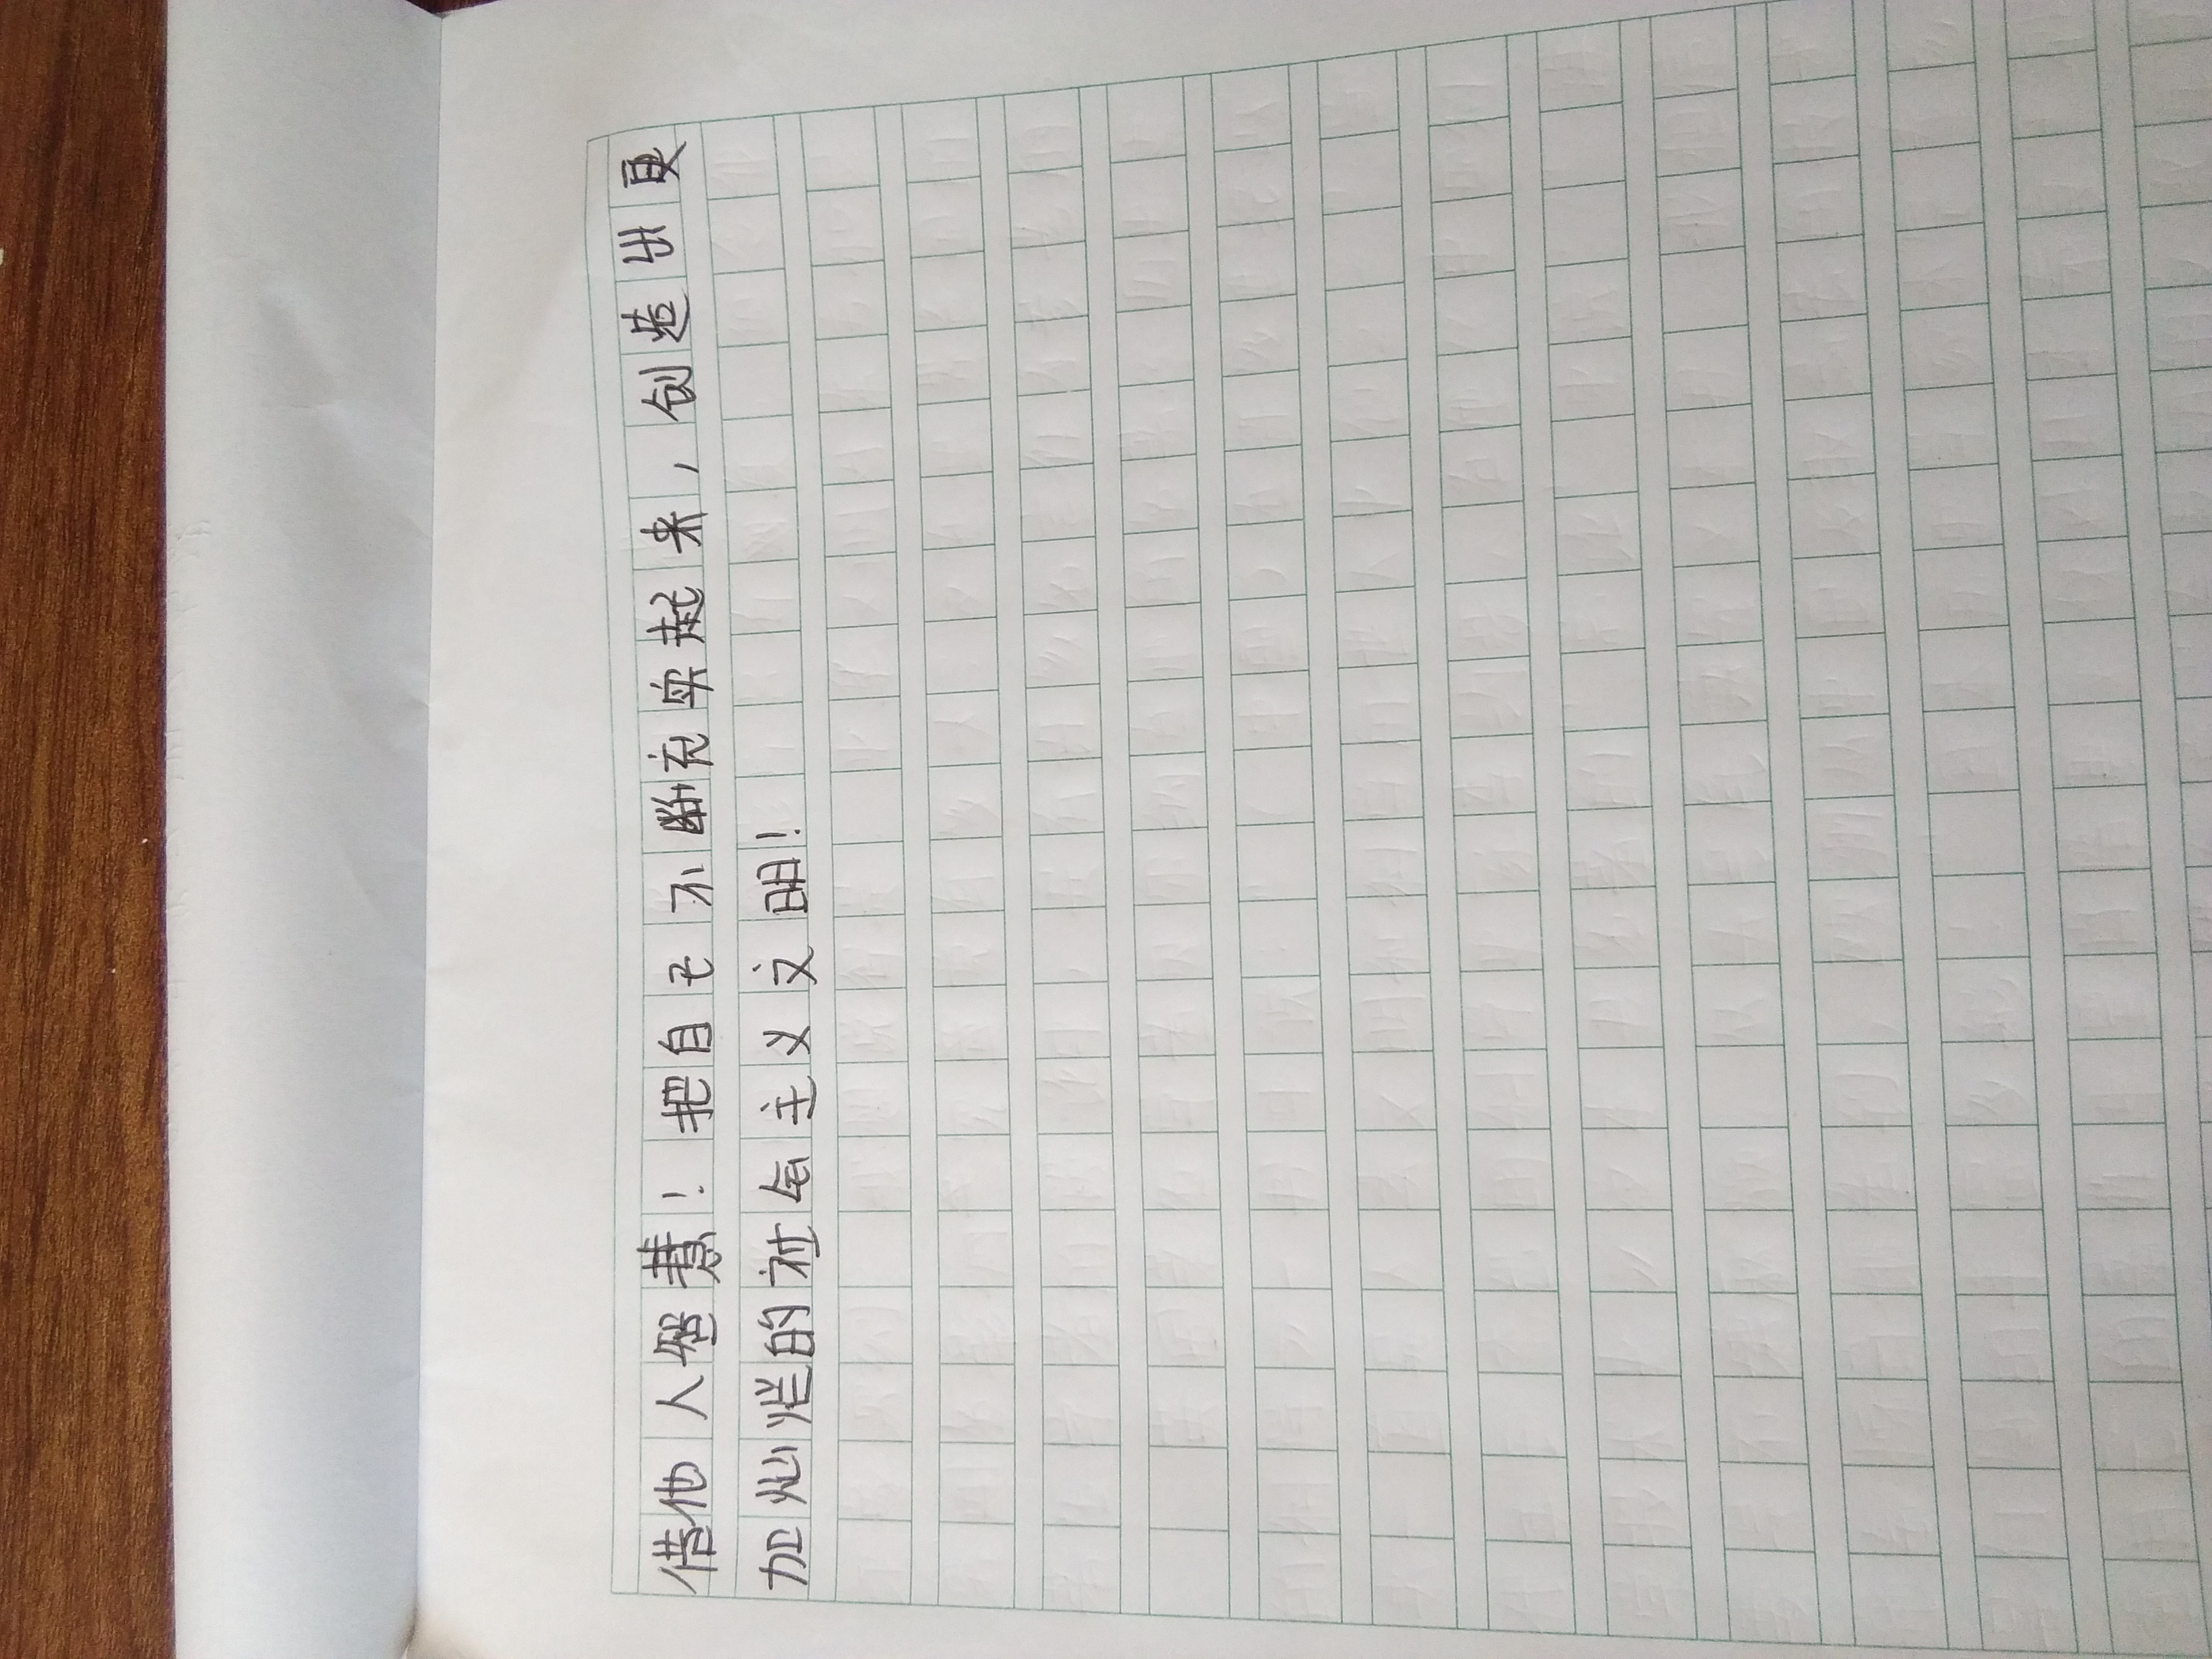 借他人智慧！把自己不断充实起来，创造出更
加灿烂的社会主义文明！